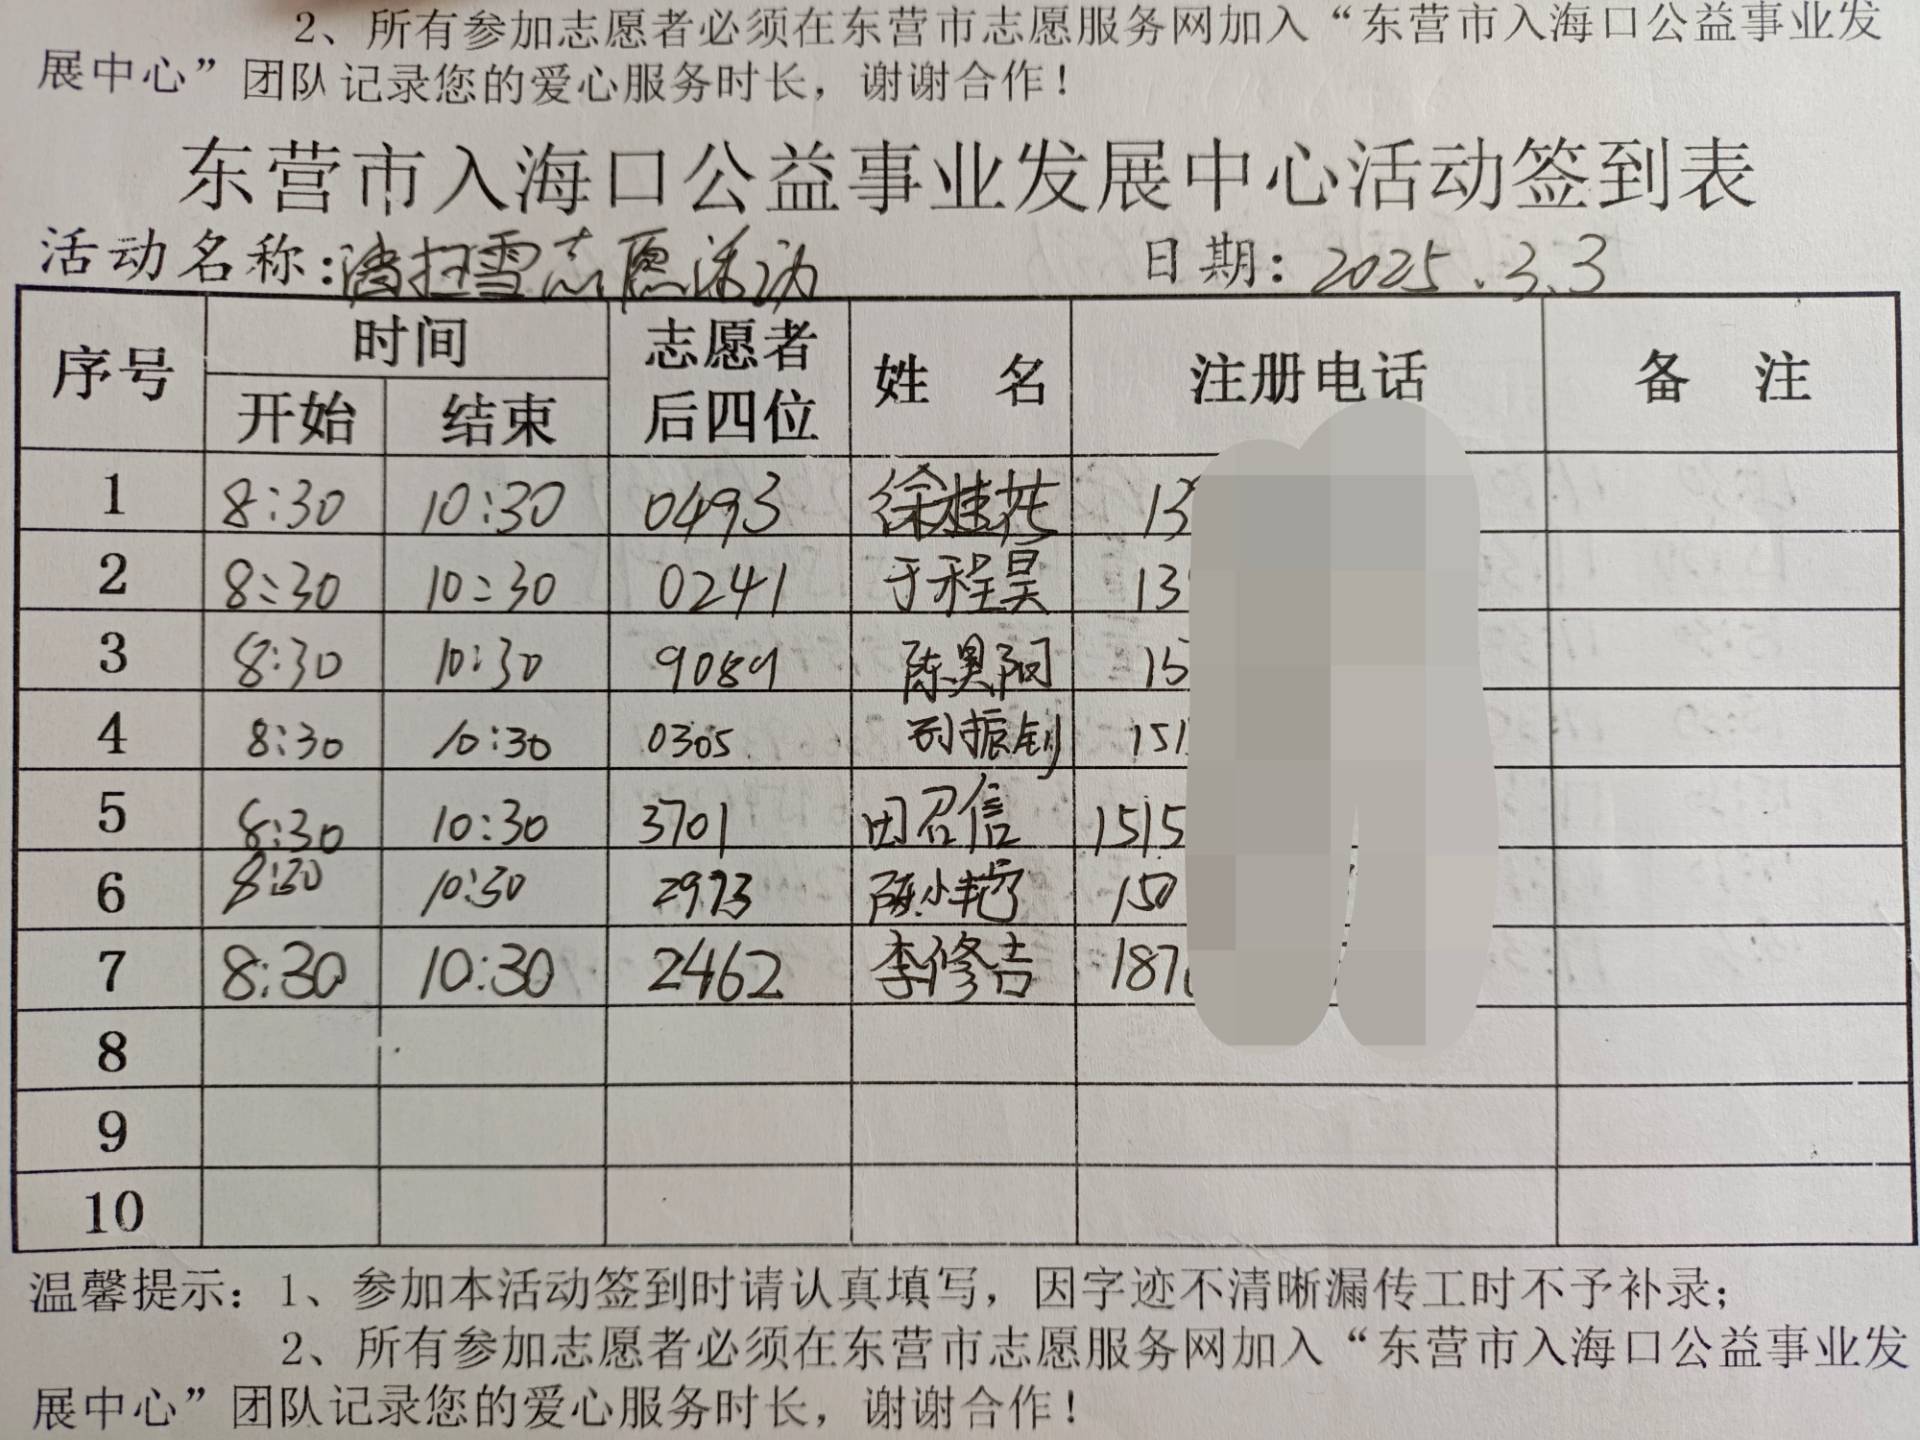 2、所有参加志愿者必须在东营市志愿服务网加入“东营市入海口公益事业发
展中心”团队记录您的爱心服务时长，谢谢合作！
东营市入海口公益事业发展中心活动签到表
活动名称：清扫雪志愿活动 日期：2025.3.3
序号 时间 志愿者后四位 姓 名 注册电话 备 注
开始 结束
1 8:30 10:30 0493 徐桂花 13
2 8:30 10:30 0241 于程昊 13
3 8:30 10:30 9089 陈昊阳 15
4 8:30 10:30 0305 刘振钊 151
5 8:30 10:30 3701 田召信 1515
6 8:30 10:30 2973 陈小艳 150
7 8:30 10:30 2462 李修吉 187
8
9
10
温馨提示：1、参加本活动签到时请认真填写，因字迹不清晰漏传工时不予补录；
2、所有参加志愿者必须在东营市志愿服务网加入“东营市入海口公益事业发
展中心”团队记录您的爱心服务时长，谢谢合作！